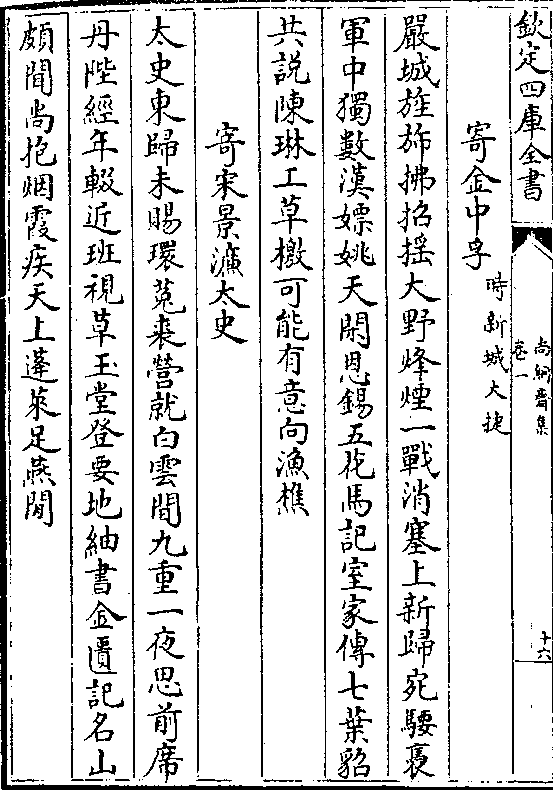 欽定四庫全書
尚絅齋集
卷一
十六
寄金中孚
時新城大捷
嚴城旌斾拂招揺大野烽煙一戰消塞上新歸宛騕褭
軍中獨數漢嫖姚天閑恩錫五花馬記室家傳七葉貂
共説陳琳工草檄可能有意向漁樵
寄宋景濂太史
太史東歸未賜環菟裘營就白雲間九重一夜思前席
丹陛經年輟近班視草玉堂登要地紬書金匱記名山
頗聞尚抱烟霞疾天上蓬萊足燕閒